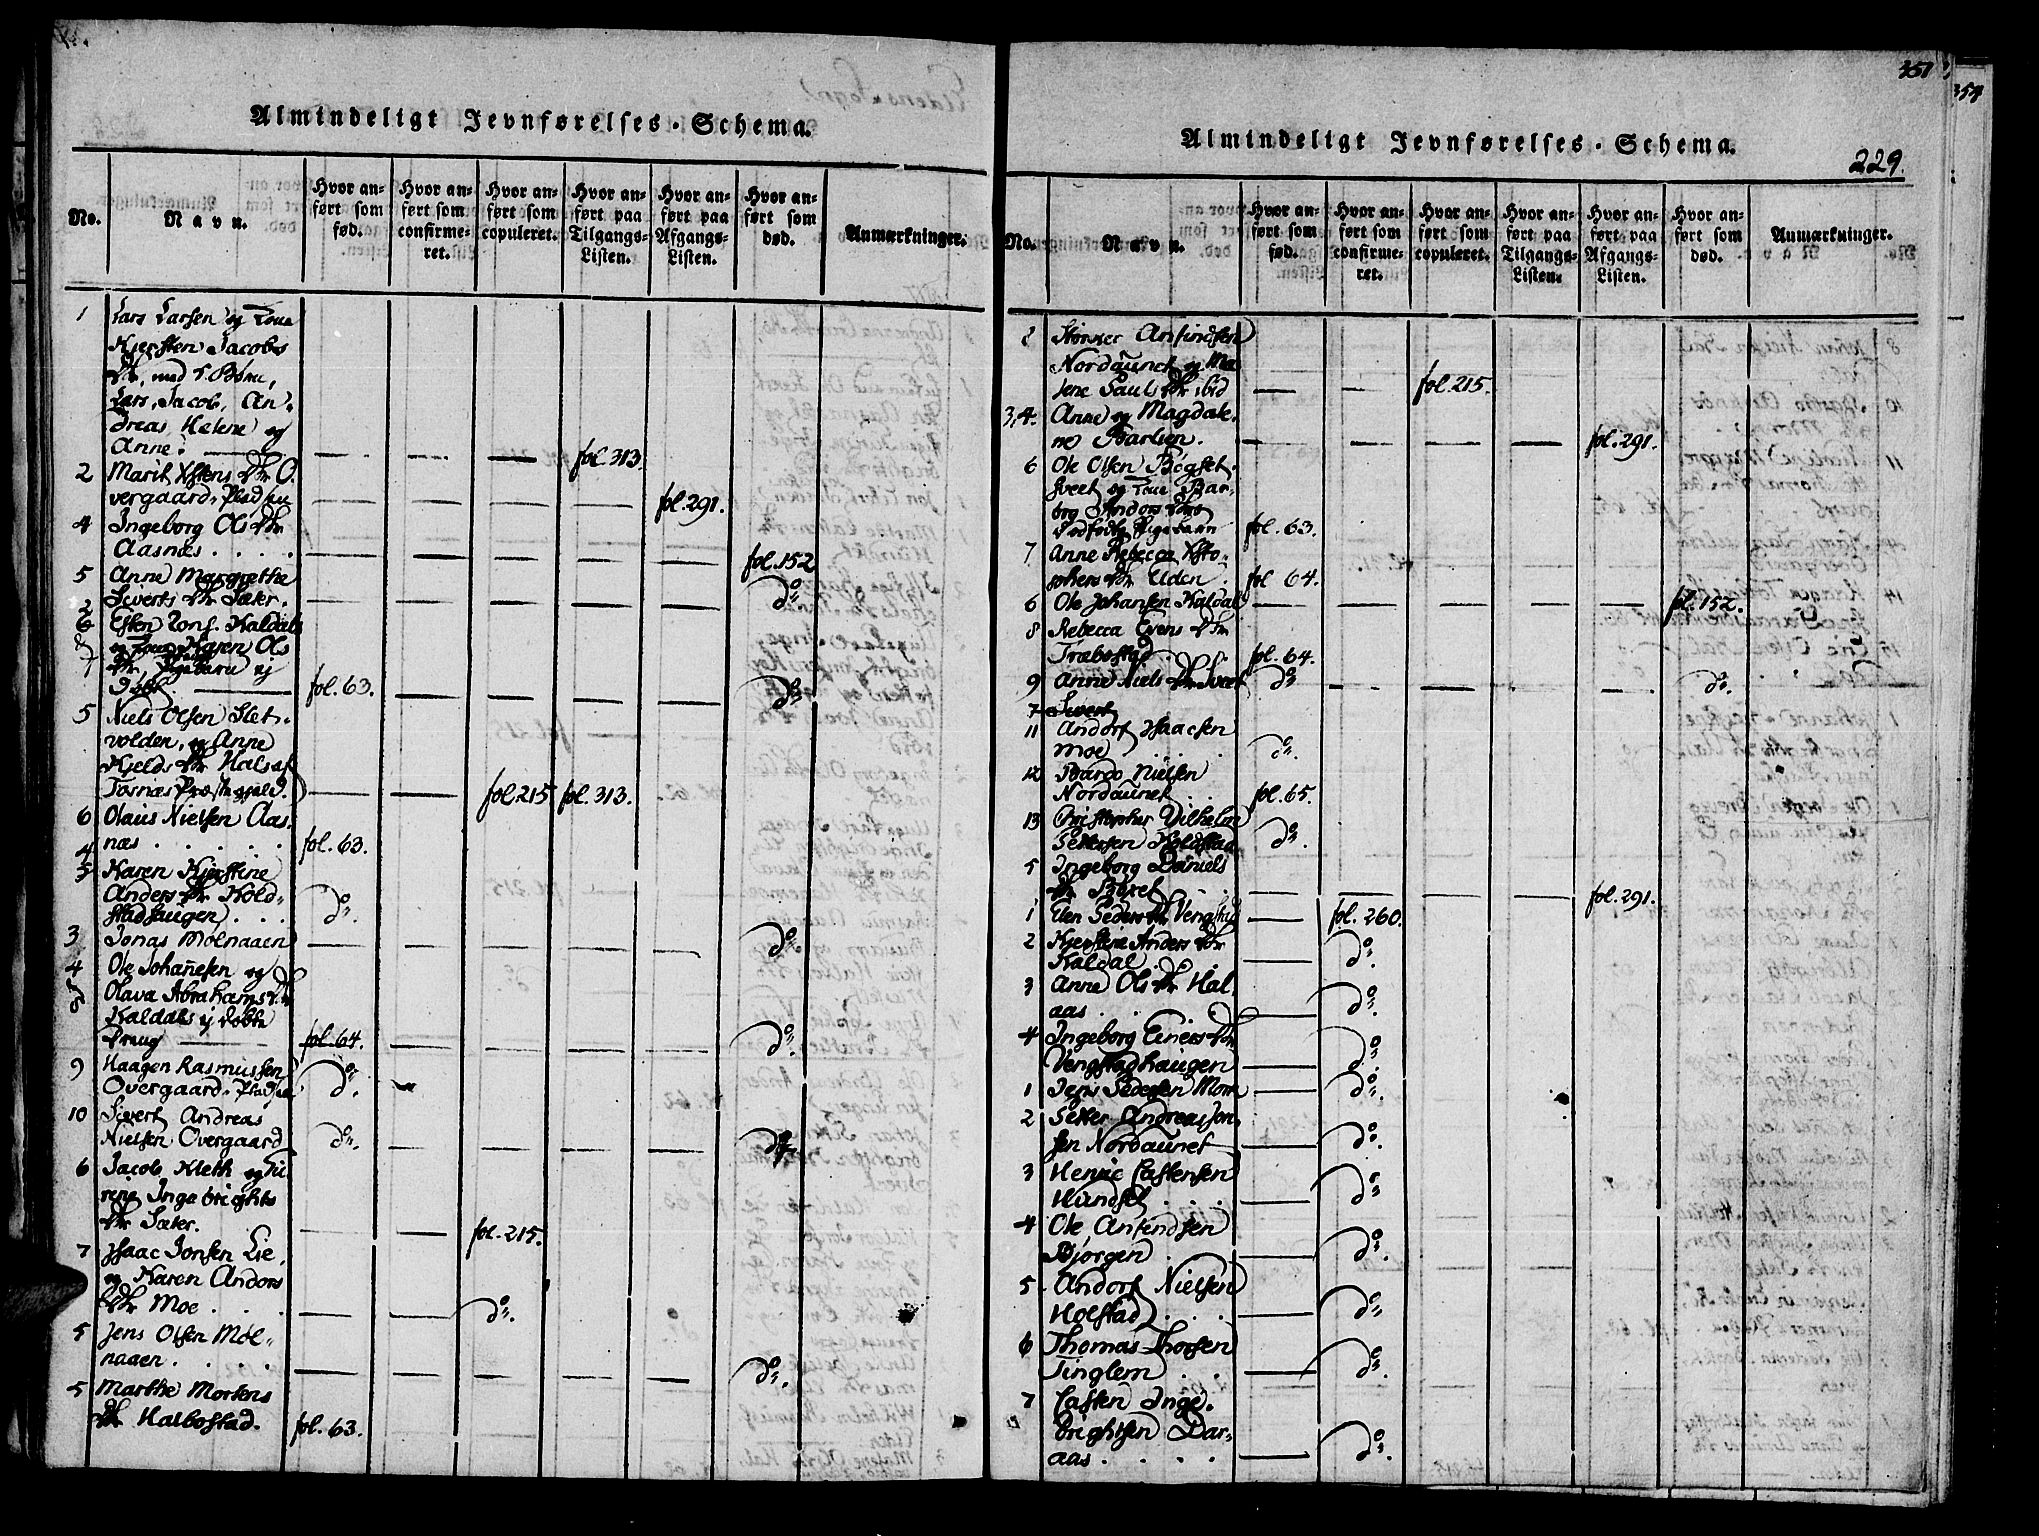 Almindeligt Jevnførelses-Schema.
No.
Navn.
Hvor anført som fød.
Hvor anført som confirmeret.
Hvor anført som copuleret.
Hvor anført paa Tilgangs-Listen.
Hvor anført paa Afgangs-Listen.
Hvor anført som død.
Anmærkninger.
1 Lars Larsen og Kone
Kjersten Jacobs
Dtr, med 5 Børn,
Lars, Jacob, An-
dreas Helene og
Anne. fol. 313.
2 Marit Xstens Dtr O-
vergaards Plads fol. 291.
4 Ingeborg Ols Dtr
Aasnæs . . . . fol. 152
5 Anne Margrethe
Siverts Dtr Sæter. do
Esten Kaldals
og Kone Karen Ols
Dtr Pigebarn ej
døbt fol. 63. do
5 Niels Olsen Slet-
volden, og Anne
Kjelds Dtr Hals af
Fosnæs Præstegjeld. fol. 215 fol. 313.
6 Olaus Nielsen Aas-
næs . . . . . fol. 63.
5 Karen Kjerstine
Anders Dtr Hold-
stadhaugen . . . do.
3 Jonas Mølnaaen do.
4 Ole Johannesen og
Olava Abrahams Dtr
Kaldals ej døbte
Dreng fol. 64. do.
9 Haagen Rasmussen
Overgaards Plads do.
10 Sivert Andreas
Nielsen Overgaard do. do
6 Jacob Kleth og
Ingebrigts
Dtr Sæter. fol. 215.
7 Isaac Jonsen Lie,
og Karen Andors
Dtr Moe . . . do.
5 Jens Olsen Møl-
naaen . . . . do.
5 Marthe Mortens
Dtr Halbostad. fol. 63.
351
Almindeligt Jevnførelses-Schema.
229.
No.
Navn.
Hvor anført som fød.
Hvor anført som confirmeret.
Hvor anført som copuleret.
Hvor anført paa Tilgangs-Listen.
Hvor anført paa Afgangs-Listen.
Hvor anført som død.
Anmærkninger.
Anfindsen
Nordaunet og Ma-
lene Pauls Dtr ibid fol. 215.
3,4. Anne og Magdale-
ne Barlien. fol. 291.
6 Ole Olsen Bøgset-
sveet og Kone Bar-
bro Andors Dtrs
dødfødte Pigebarn fol. 63.
7 Anne Rebecca Xsto-
phers Dtr Elden . fol. 64.
6 Ole Johansen Kaldal fol. 152.
8 Rebecca Evens Dtr
Træbostad . . fol. 64.
9 Anne Niels Dtr Sveet do do.
7 Sivert
11 Andors Isaacsen
Moe . . . . do.
12 Bardo Nielsen
Nordaunet . . fol. 65.
13 Christopher Vilhelm
Pettersen Holdstad do.
5 Ingeborg Daniels
Dtr Buret . . . fol. 291.
1 Elen Peders Dtr Vengstad fol. 260.
2 Kjerstine Anders Dtr
Kaldal . . . do.
3 Anne Ols Dtr Hal-
aas . . . . do.
4 Ingeborg Einers Dtr
Vengstadhaugen do.
1 Jens Pedersen Moen do.
2 Petter Andreas Jon-
sen Nordaunet do.
3 Henric Castensen
Hundset . . . do.
4 Ole Anfendsen
Bjørgen . . do.
5 Andors Nielsen
Holstad . . . do.
6 Thomas Thorsen
Tinglem . . do.
7 Casten Inge-
brightsen Dar-
aas . . . . do.